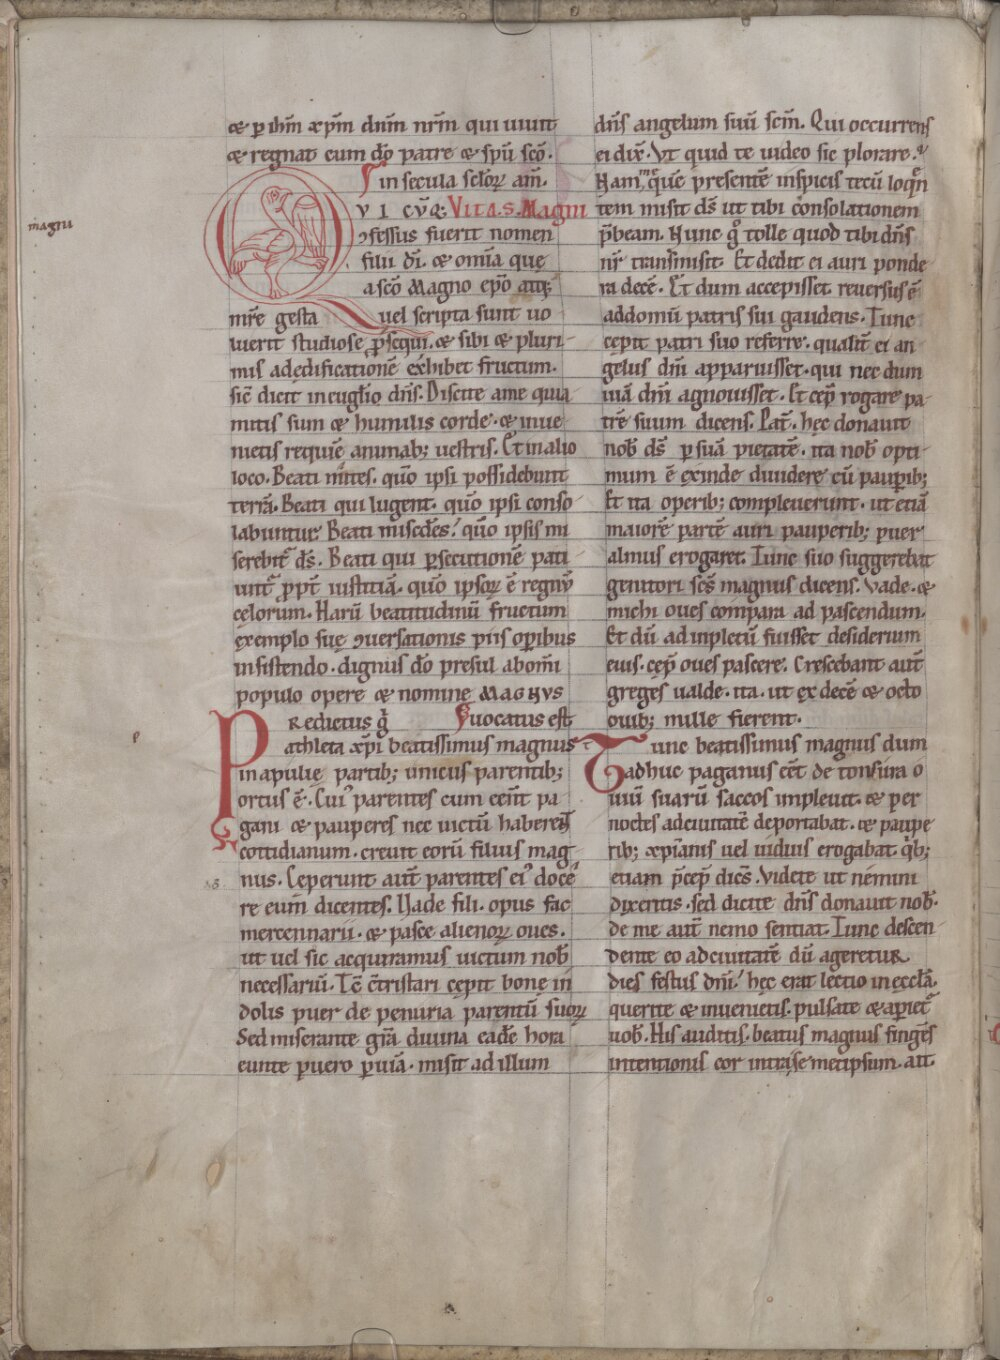 magnu
& p ihm xpm dnm nrm qui uiuit
& regnat cum do patre & spu sco.
in secula sclorꝫ am.
QVI CVQ; VITA. S. Magni
ꝯfessus fuerit nomen
filii di. & omia que
a sco Magno epo aut
mre gesta uel scripta sunt uo
luerit studiose psequi. & sibi & pluri
mis ad edificatione exhibet fructum.
sic dicit in euglio dns. Discite a me quia
mitis sum & humilis corde. & inue
nietis requie animab; uestris. Et in alio
loco. Beati mites. quo ipsi possidebunt
terra. Beati qui lugent. quo ipsi conso
labuntur. Beati misedes. quo ipsis mi
serebit ds. Beati qui psecutione pati
unt ppt iustitia. quo ipsorꝫ e regnu
celorum. Haru beatitudinu fructum
exemplo sue ꝯuersationis piis opibus
insistendo. dignus do presul ab omi
populo opere & nomine MAGNVS
Predictus g uocatus est
athleta xpi beatissimus magnus
in apulie partib; unicus parentib;
ortus e. Cui' parentes cum eent pa
gani & pauperes nec uictu haberent
cottidianum. creuit eoru filius mag
nus. Ceperunt aut parentes ei' doce
re eum dicentes. Vade fili. opus fac
mercennarii. & pasce alienorꝫ oues.
ut uel sic acquiramus uictum nob
necessariu. Tc ctristari cepit bone in
dolis puer de penuria parentu suorꝫ
Sed miserante gra diuina eade hora
eunte puero p uia. misit ad illum
dns angelum suu scm. Qui occurrens
ei dix. Vt quid te uideo sic plorare.
Nam que presente inspicis tecu loqn
tem misit ds ut tibi consolationem
pbeam. Nunc g tolle quod tibi dns
nr transmisit. Et dedit ei auri ponde
ra dece. Et dum accepisset reuersus e
ad domu patris sui gaudens. Tunc
cepit patri suo referre. qualit ei an
gelus dni apparuisset. qui nec dum
uia dni agnouisset. Et cep rogare pa
tre suum dicens. Pat. hec donauit
nob ds p sua pietate. ita nob opti
mum e exinde diuidere cu paupib;
Et ita operib; compleuerunt. ut etia
maiore parte auri pauperib; puer
almus erogaret. Tunc suo suggerebat
genitori scs magnus dicens. Vade. &
michi oues compara ad pascendum.
Et du ad inpletu fuisset desiderium
eius. cep oues pascere. Crescebant aut
greges ualde. ita. ut ex dece & octo
ouib; mille fierent.
Tunc beatissimus magnus dum
adhuc paganus eet de tonsura o
uiu suaru saccos impleuit. & per
noctes ad ciuitate deportabat. & paupe
rib; xpianis uel uiduis erogabat qb;
etiam pcep dics. Videte ut nemini
dixeritis. sed dicite dns donauit nob.
de me aut nemo sentiat. Tunc descen
dente eo ad ciuitate du ageretur
dies festus dni. hec erat lectio in eccla.
querite & inuenietis. pulsate & apiet
uob. His auditis. beatus magnus finges
intentionis cor intra se metipsum. ait.